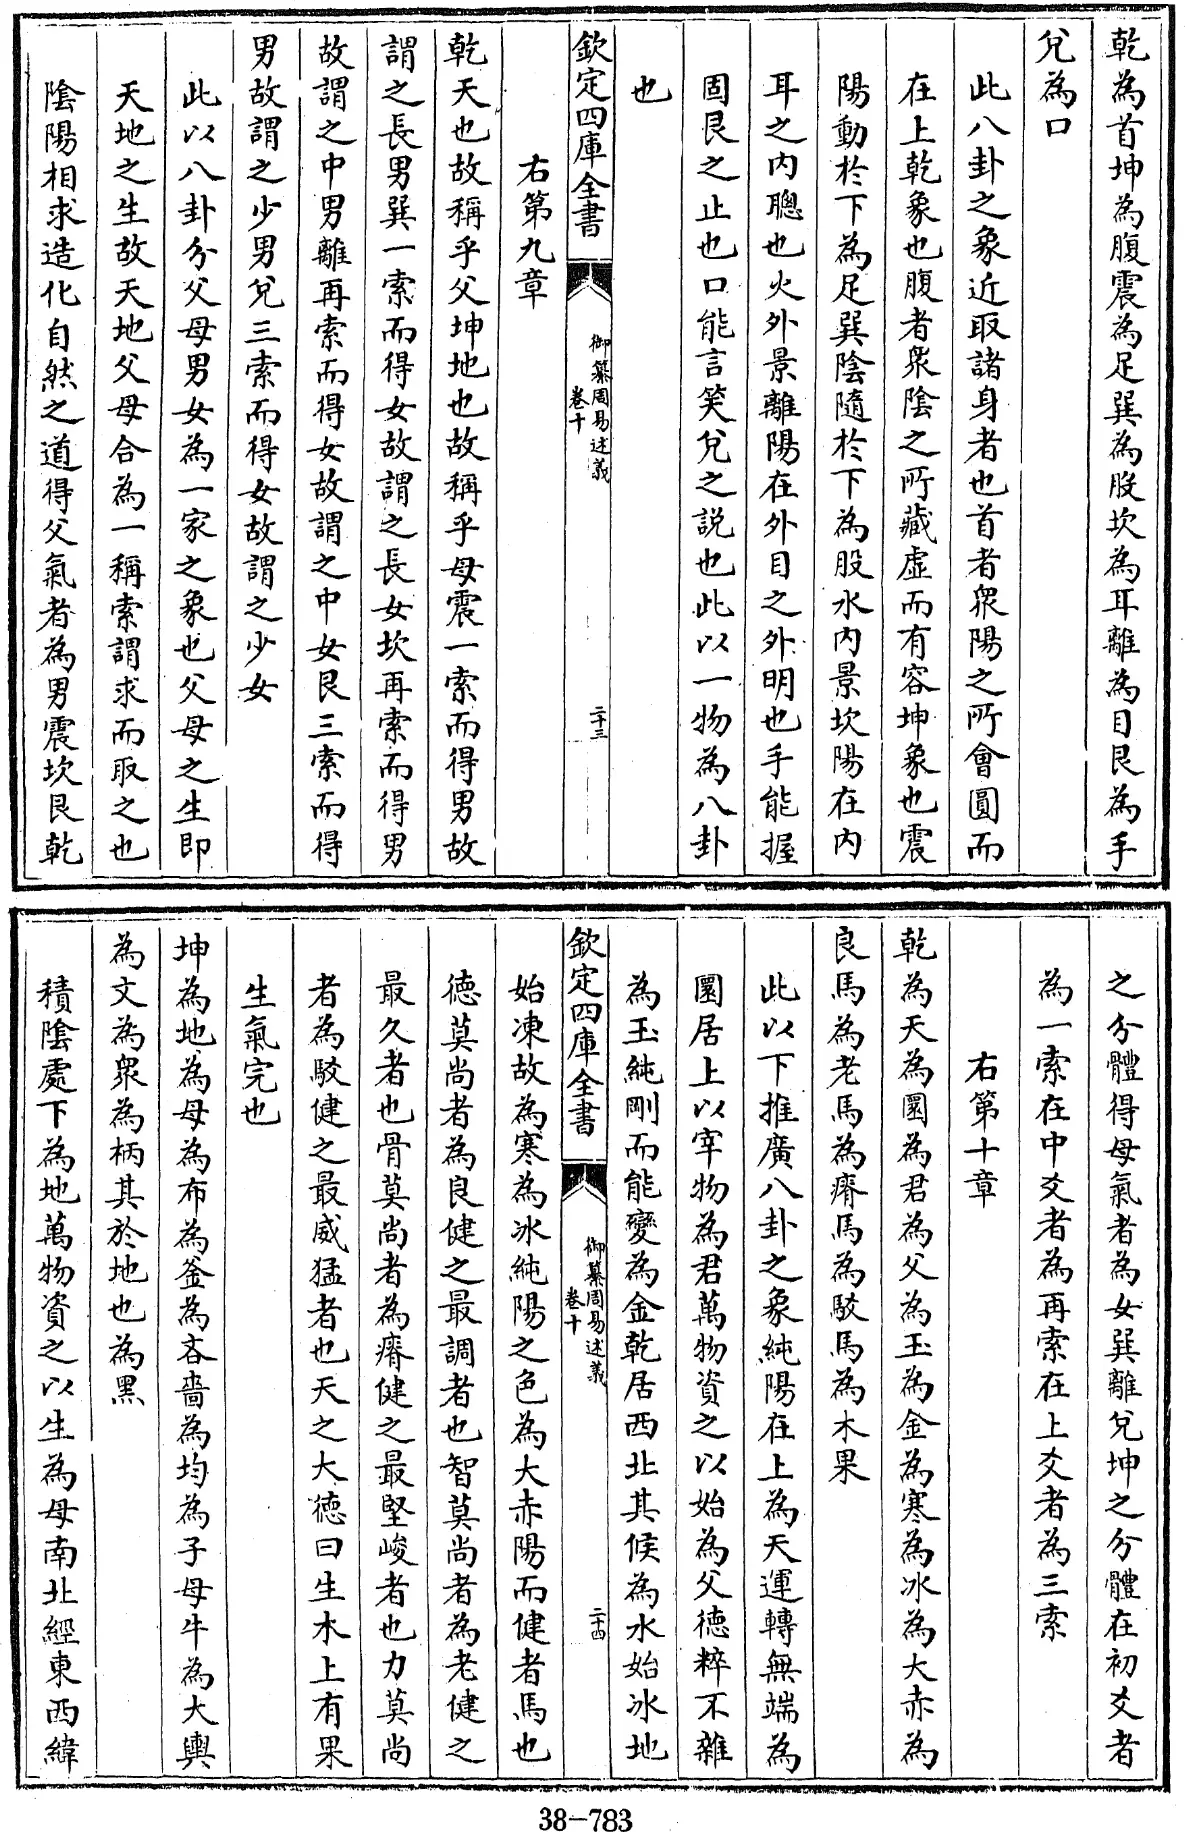 乾為首坤為腹震為足巽為股坎為耳離為目艮為手
兌為口
此八卦之象近取諸身者也首者衆陽之所會圓而
在上乾象也腹者衆陰之所藏虛而有容坤象也震
陽動於下為足巽陰隨於下為股水內景坎陽在內
耳之內聰也火外景離陽在外目之外明也手能握
固艮之止也口能言笑兌之說也此以一物為八卦
也
欽定四庫全書
御纂周易述義
卷十
二十三
右第九章
乾天也故稱乎父坤地也故稱乎母震一索而得男故
謂之長男巽一索而得女故謂之長女坎再索而得男
故謂之中男離再索而得女故謂之中女艮三索而得
男故謂之少男兌三索而得女故謂之少女
此以八卦分父母男女為一家之象也父母之生即
天地之生故天地父母合為一稱索謂求而取之也
陰陽相求造化自然之道得父氣者為男震坎艮乾
之分體得母氣者為女巽離兌坤之分體在初爻者
為一索在中爻者為再索在上爻者為三索
右第十章
乾為天為圜為君為父為玉為金為寒為冰為大赤為
良馬為老馬為瘠馬為駁馬為木果
此以下推廣八卦之象純陽在上為天運轉無端為
圜居上以宰物為君萬物資之以始為父德粹不雜
為玉純剛而能變為金乾居西北其候為水始冰地
欽定四庫全書
御纂周易述義
卷十
二十四
始凍故為寒為冰純陽之色為大赤陽而健者馬也
德莫尚者為良健之最調者也智莫尚者為老健之
最久者也骨莫尚者為瘠健之最堅峻者也力莫尚
者為駁健之最威猛者也天之大德曰生木上有果
生氣完也
坤為地為母為布為釜為吝嗇為均為子母牛為大輿
為文為衆為柄其於地也為黑
積陰處下為地萬物資之以生為母南北經東西緯
38-783